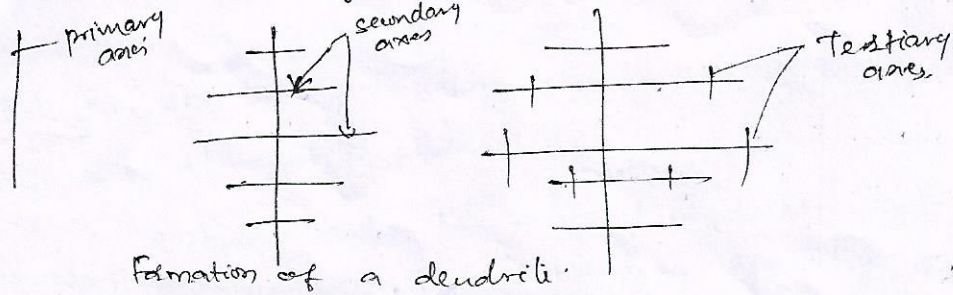 primary
axis
secondary
axes
Tertiary
axes.
Formation of a dendrite.